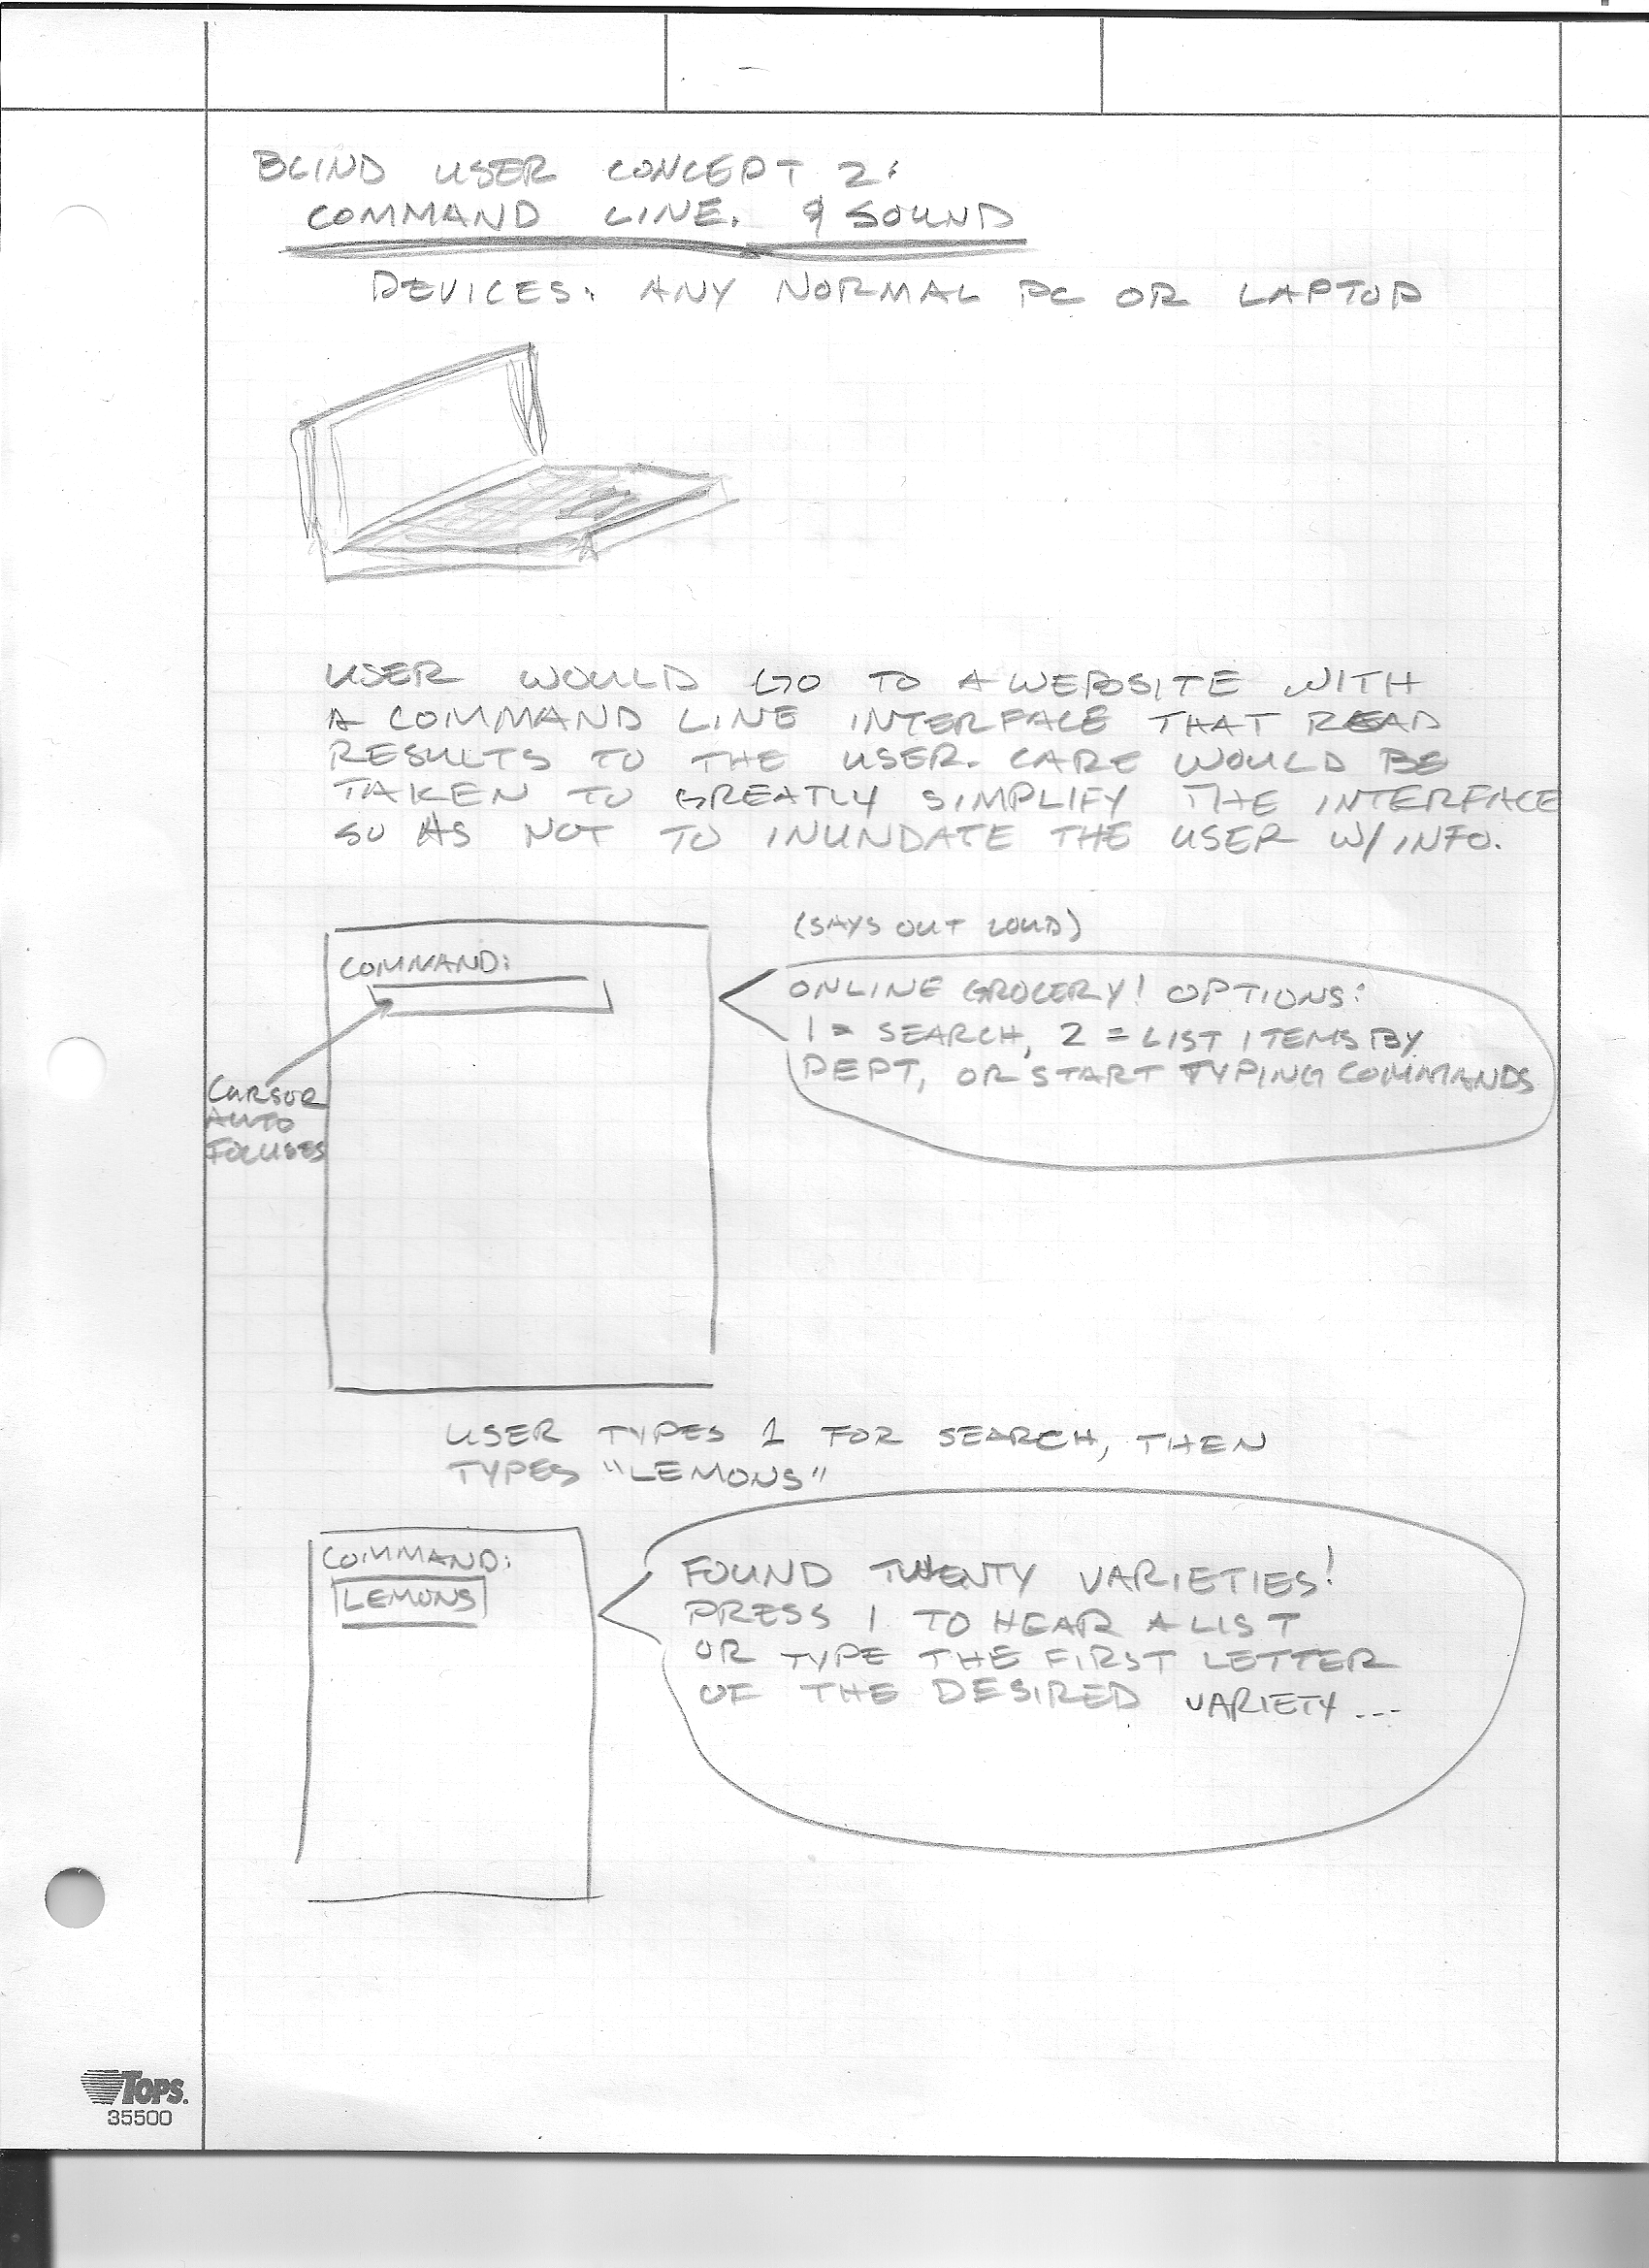 BLIND USER CONCEPT 2:
COMMAND LINE. & SOUND
DEVICES: ANY NORMAL PC OR LAPTOP
USER WOULD GO TO A WEBSITE WITH
A COMMAND LINE INTERFACE THAT READ
RESULTS TO THE USER. CARE WOULD BE
TAKEN TO GREATLY SIMPLIFY THE INTERFACE
SO AS NOT TO INUNDATE THE USER W/ INFO.
(SAYS OUT LOUD)
COMMAND:
ONLINE GROCERY! OPTIONS:
1 = SEARCH, 2 = LIST ITEMS BY
DEPT, OR START TYPING COMMANDS
CURSOR
AUTO
FOCUSES
USER TYPES 1 FOR SEARCH, THEN
TYPES "LEMONS"
COMMAND:
LEMONS
FOUND TWENTY VARIETIES!
PRESS 1 TO HEAR A LIST
OR TYPE THE FIRST LETTER
OF THE DESIRED VARIETY...
TOPS.
35500